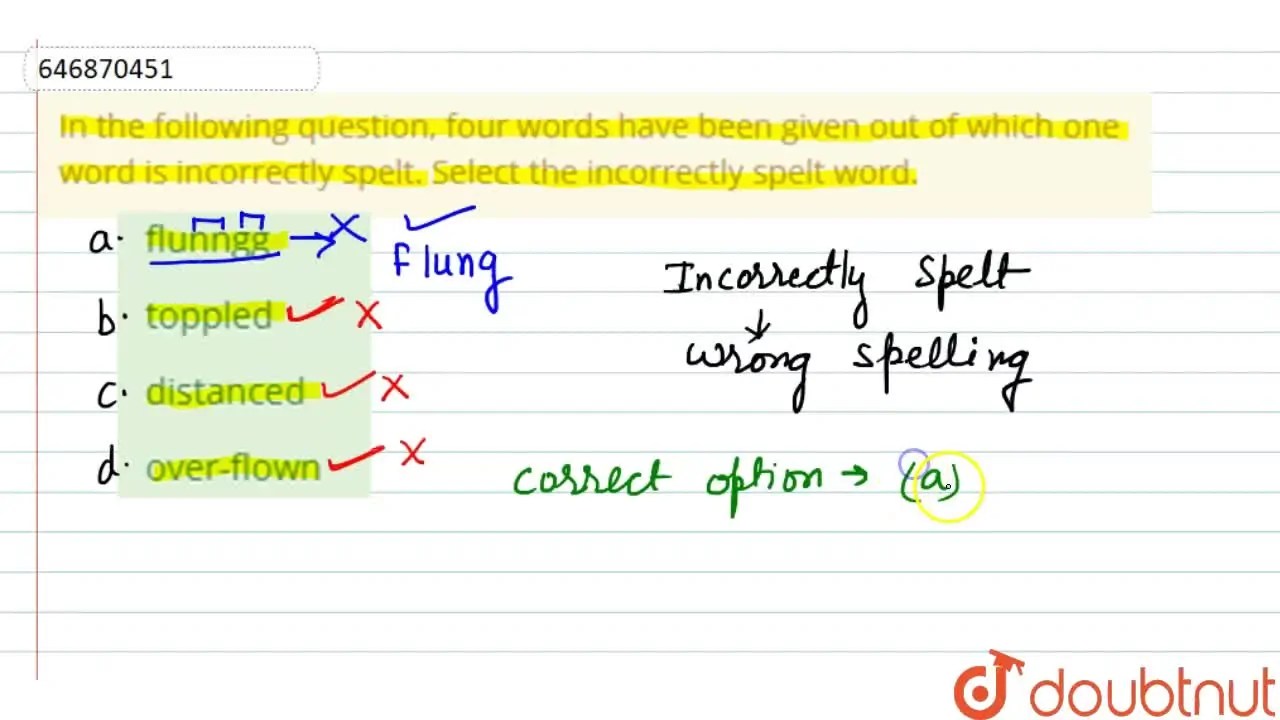 646870451
In the following question, four words have been given out of which one
word is incorrectly spelt. Select the incorrectly spelt word.
a. flunngg → X ✓
Flung
b. toppled ✓ X
c. distanced ✓ X
d. over-flown ✓ X
Incorrectly Spelt
↓
wrong spelling
correct option → (a)
doubtnut